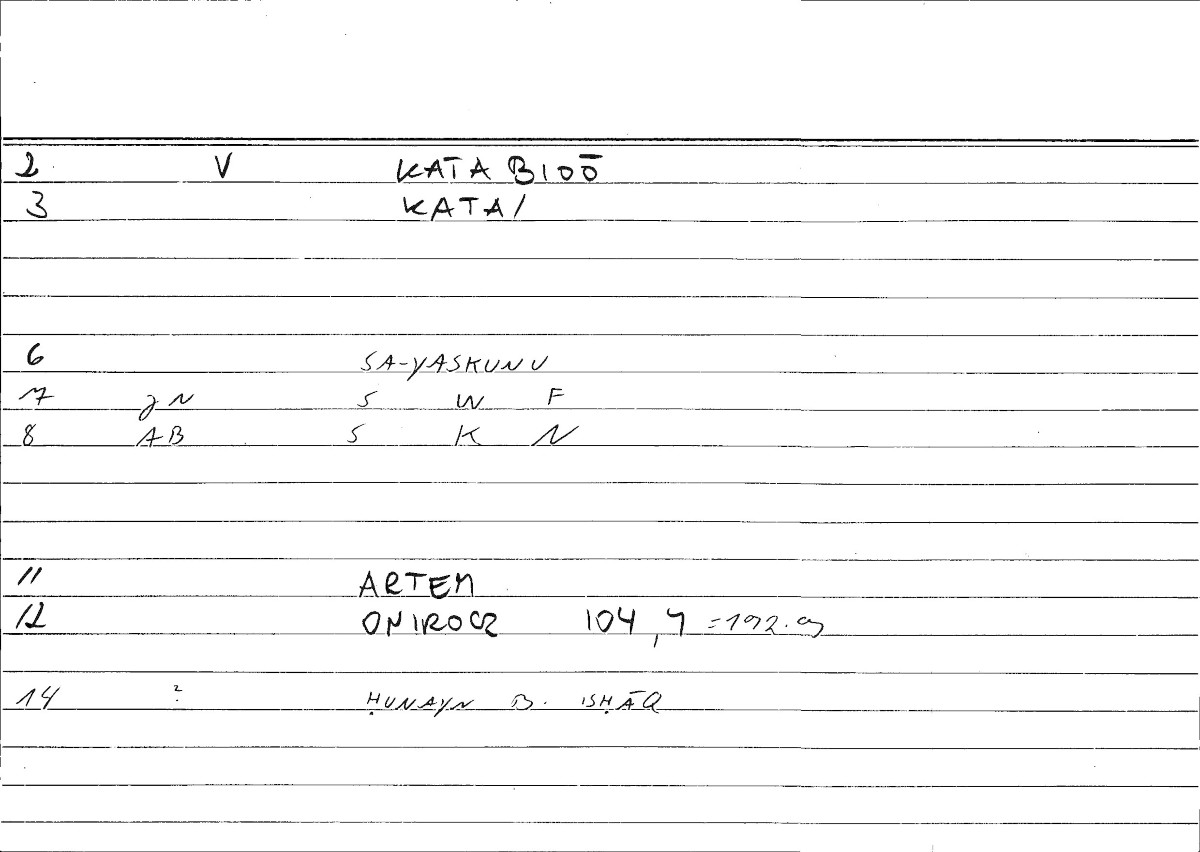 2 V KATA BIOŌ
3 KATA/
6 SA-YASKUNU
7 JN S W F
8 AB S K N
11 ARTEM
12 ONIROCR 104,4 =192.
14 ? ḤUNAYN B. ISḤĀQ